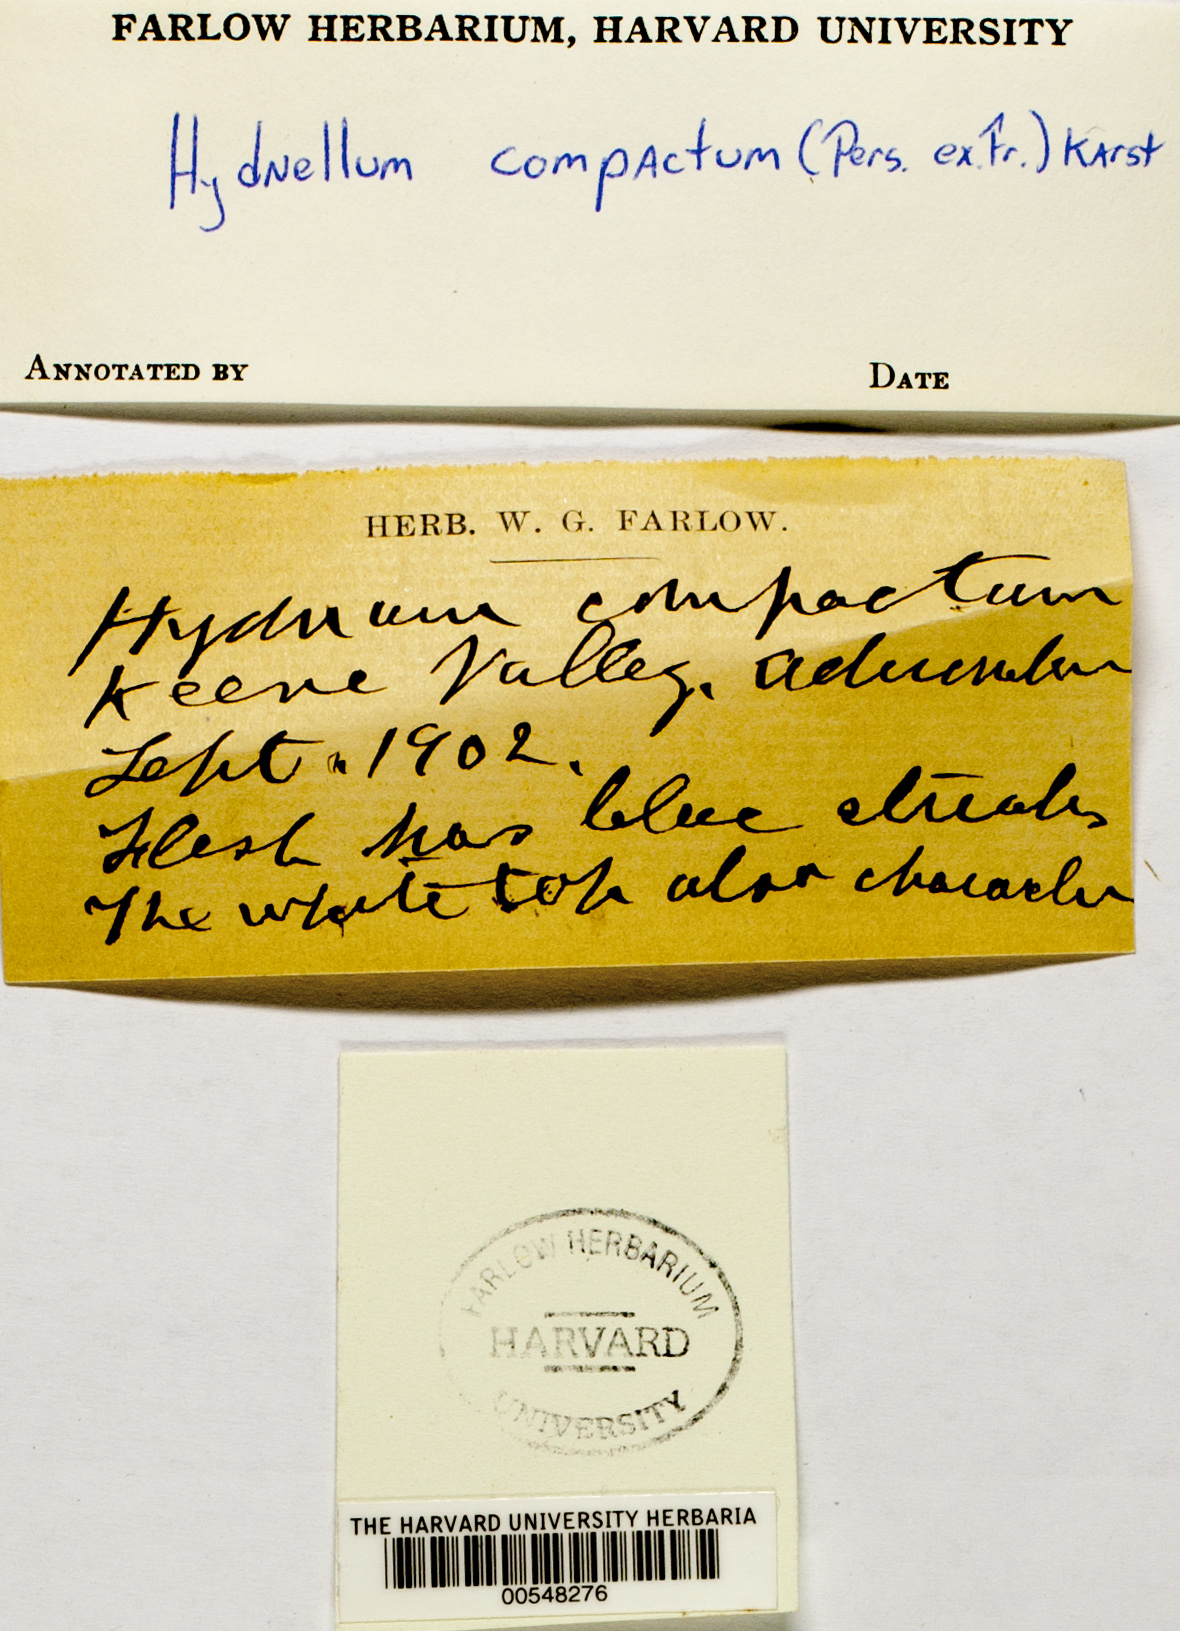 FARLOW HERBARIUM, HARVARD UNIVERSITY
Hydnellum compactum (Pers. ex. Fr.) Karst
ANNOTATED BY DATE
HERB. W. G. FARLOW.
Hydnum compactum
Keene Valley,
Sept. 1902.
Flesh has blue streaks
The white top also
FARLOW HERBARIUM
HARVARD
UNIVERSITY
THE HARVARD UNIVERSITY HERBARIA
00548276